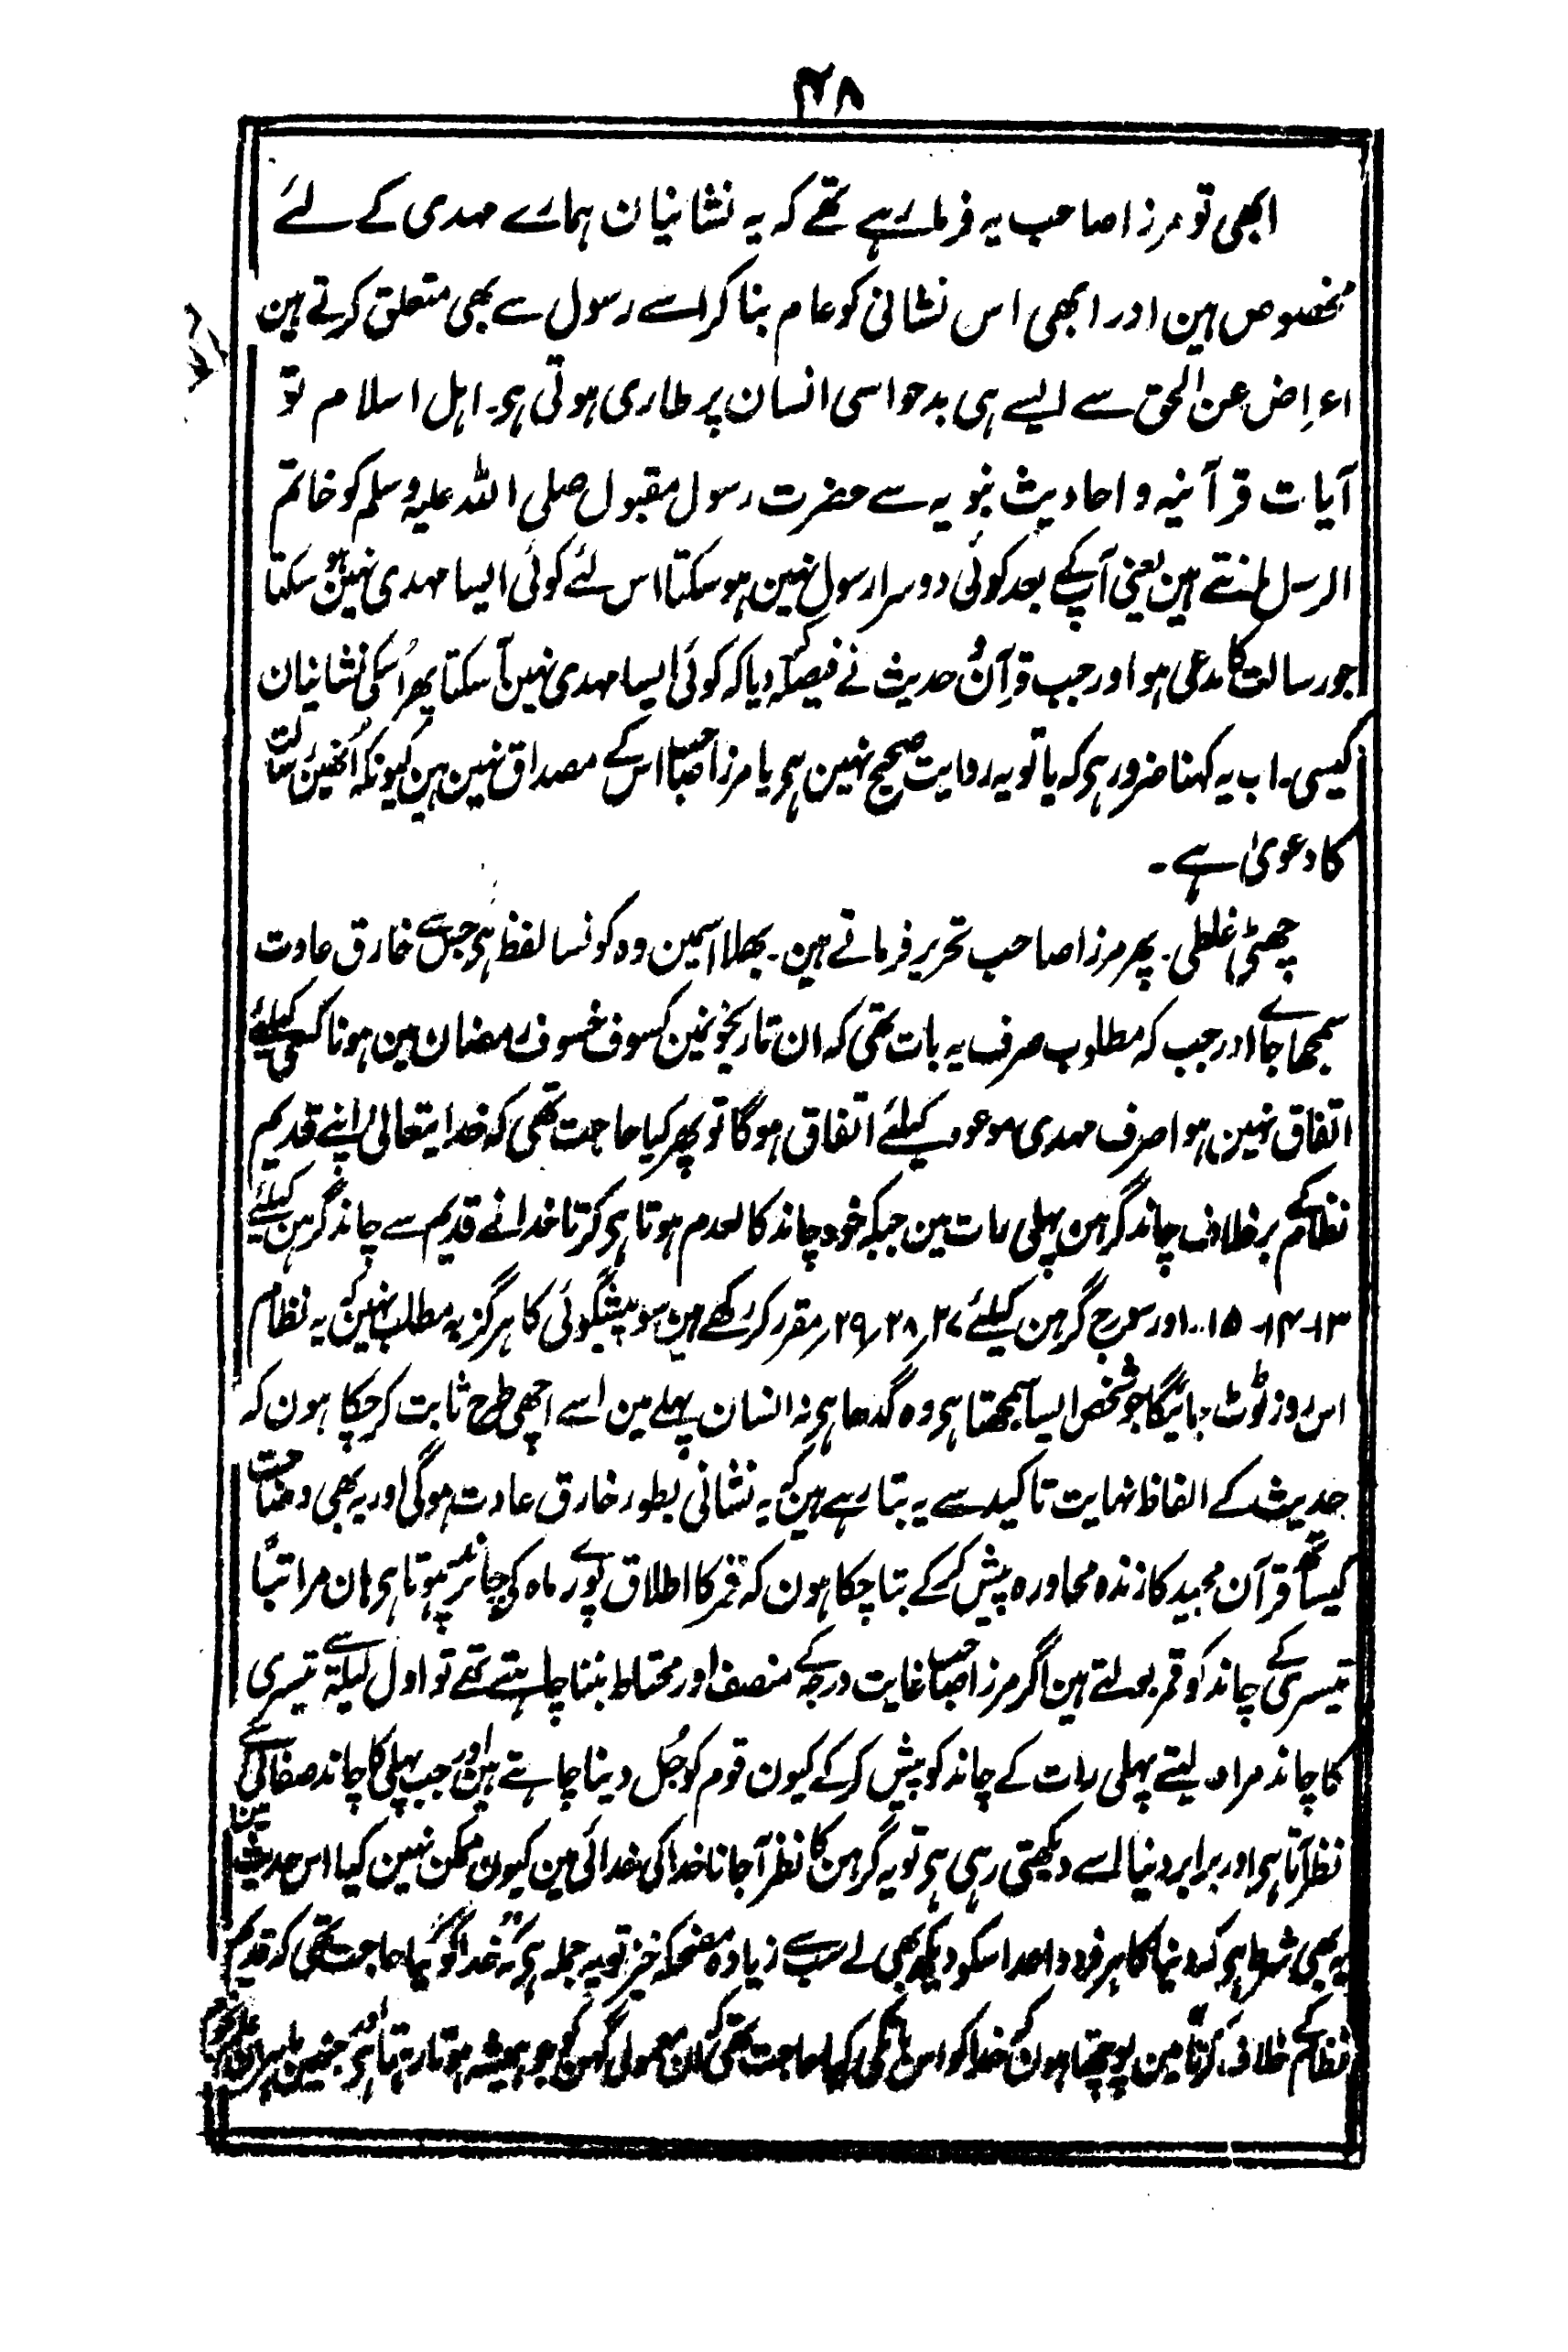 ۴۸
ابھی تو مرزا صاحب یہ فرما رہے تھے کہ یہ نشانیان ہمارے مہدی کے لئے
مخصوص ہین اور ابھی اس نشانی کو عام بنا کر اسے رسول سے بھی متعلق کرتے ہین
اعراض عن الحق سے ایسے ہی بدحواسی انسان پر طاری ہوتی ہی۔ اہل اسلام تو
آیات قرآنیہ و احادیث نبویہ سے حضرت رسول مقبول صلی اللہ علیہ وسلم کو خاتم
الرسل مانتے ہین یعنی آپ کے بعد کوئی دوسرا رسول نہین ہوسکتا اس لئے کوئی ایسا مہدی نہین ہو سکتا
جو رسالت کا مدعی ہو اور جب قرآن و حدیث نے فیصلہ کر دیا کہ کوئی ایسا مہدی نہین آسکتا پھر اُسکی نشانیان
کیسی۔ اب یہ کہنا ضرور ہی کہ یا تو یہ روایت صحیح نہین ہی یا مرزا صاحب اس کے مصداق نہین ہین کیونکہ اُنھین رسالت
کا دعویٰ ہے۔
چھٹی غلطی۔ پھر مرزا صاحب تحریر فرماتے ہین۔ بھلا اسمین وہ کونسا لفظ ہی جس سے خارق عادت
سمجھا جاے اور جب کہ مطلوب صرف یہ بات تھی کہ ان تاریخونمین کسوف خسوف رمضان مین ہونا کسی کیلئے
اتفاق نہین ہوا صرف مہدی موعود کیلئے اتفاق ہوگا تو پھر کیا حاجت تھی کہ خدایتعالیٰ اپنے قدیم
نظام کے برخلاف چاند گرہن پہلی رات مین جبکہ خود چاند کالعدم ہوتا ہی کرتا خدا نے قدیم سے چاند گرہن کیلئے
۱۳-۱۴-۱۵۔ اور سورج گرہن کیلئے ۲۷؍ ۲۸؍ ۲۹؍ مقرر کر رکھے ہین سو پیشگوئی کا ہرگز یہ مطلب نہین کہ یہ نظام
اس روز ٹوٹ جائیگا جو شخص ایسا سمجھتا ہی وہ گدھا ہی نہ انسان پہلے مین اسے اچھی طرح ثابت کرچکا ہون کہ
حدیث کے الفاظ نہایت تاکید سے یہ بتا رہے ہین کہ یہ نشانی بطور خارق عادت ہوگی اور یہ بھی وضاحت
کیساتھ قرآن مجید کا زندہ محاورہ پیش کرکے بتا چکا ہون کہ قمر کا اطلاق پورے ماہ کی چاند پر ہوتا ہی ہان مراتباً
تیسری کے چاند کو قمر بولتے ہین اگر مرزا صاحب غایت درجہ کے منصف اور محتاط بننا چاہتے تھے تو اول لیلۃ سے تیسری
کا چاند مراد لیتے پہلی رات کے چاند کو پیش کرکے کیون قوم کو جُل دینا چاہتے ہین اور جب پہلی کا چاند صفائی سے
نظر آتا ہی اور برابر دنیا اسے دیکھتی رہی ہی تو یہ گرہن کا نظر آجانا خدا کی خدائی مین کیون ممکن نہین کیا اس حدیث مین
یہ بھی شرط ہی کہ دنیا کا ہر فرد واحد اسکو دیکھ بھی لے سب سے زیادہ مضحکہ خیز تو یہ جملہ ہی کہ خدا کو کیا حاجت تھی کہ قدیم
نظام کے خلاف کرتا مین پوچھتا ہون کہ خدا کو اس بات کی کیا حاجت تھی کہ ان معمولی گہن کو جو ہمیشہ ہوتا رہتا ہی اور جنھین ماہران